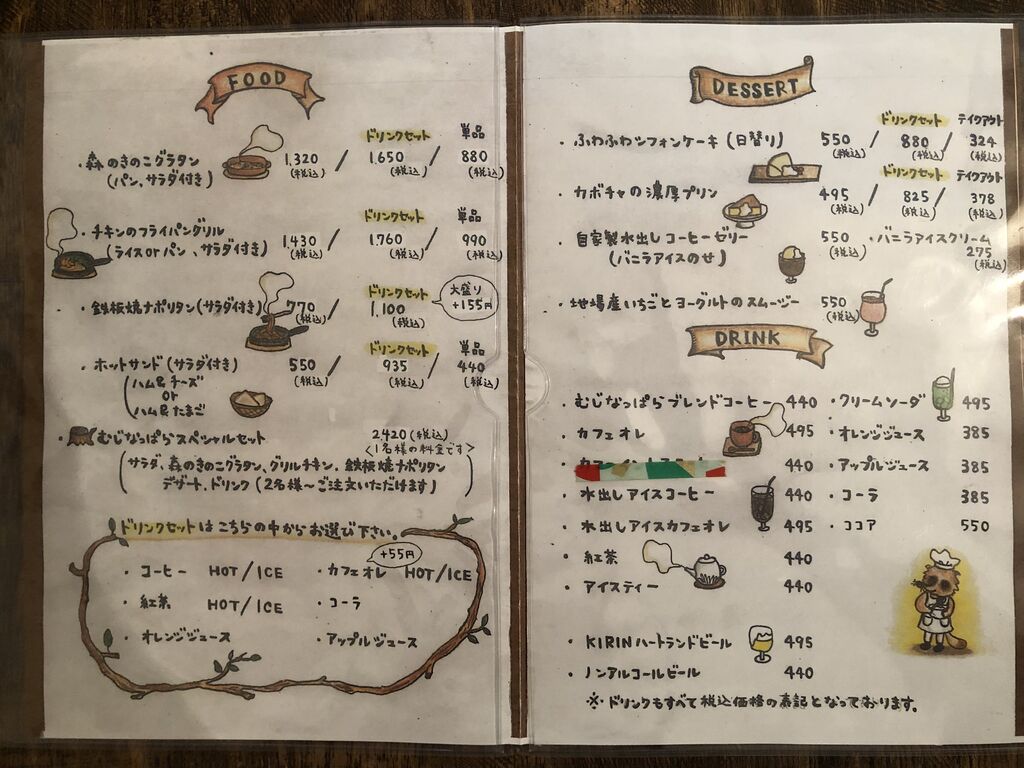 FOOD
ドリンクセット 単品
・森のきのこグラタン 1,320 / 1,650 / 880
(パン、サラダ付き) (税込) (税込) (税込)
ドリンクセット 単品
・チキンのフライパングリル 1,430 / 1,760 / 990
(ライスorパン、サラダ付き) (税込) (税込) (税込)
ドリンクセット 大盛り +155円
・鉄板焼ナポリタン(サラダ付き) 770 / 1,100
(税込) (税込)
ドリンクセット 単品
・ホットサンド(サラダ付き) 550 / 935 / 440
(税込) (税込) (税込)
ハム&チーズ
or
ハム&たまご
・むじなっぱらスペシャルセット 2420(税込)
<1名様の料金です>
サラダ、森のきのこグラタン、グリルチキン、鉄板焼ナポリタン
デザート、ドリンク(2名様〜ご注文いただけます)
ドリンクセットはこちらの中からお選び下さい。
+55円
・コーヒー HOT/ICE ・カフェオレ HOT/ICE
・紅茶 HOT/ICE ・コーラ
・オレンジジュース ・アップルジュース
DESSERT
ドリンクセット テイクアウト
・ふわふわシフォンケーキ(日替り) 550 / 880 / 324
(税込) (税込) (税込)
ドリンクセット テイクアウト
・カボチャの濃厚プリン 495 / 825 / 378
(税込) (税込) (税込)
・自家製水出しコーヒーゼリー 550 ・バニラアイスクリーム
(バニラアイスのせ) (税込) 275
(税込)
・地場産いちごとヨーグルトのスムージー 550
(税込)
DRINK
・むじなっぱらブレンドコーヒー 440 ・クリームソーダ 495
・カフェオレ 495 ・オレンジジュース 385
440 ・アップルジュース 385
・水出しアイスコーヒー 440 ・コーラ 385
・水出しアイスカフェオレ 495 ・ココア 550
・紅茶 440
・アイスティー 440
・KIRINハートランドビール 495
・ノンアルコールビール 440
※ドリンクもすべて税込価格の表記となっております。